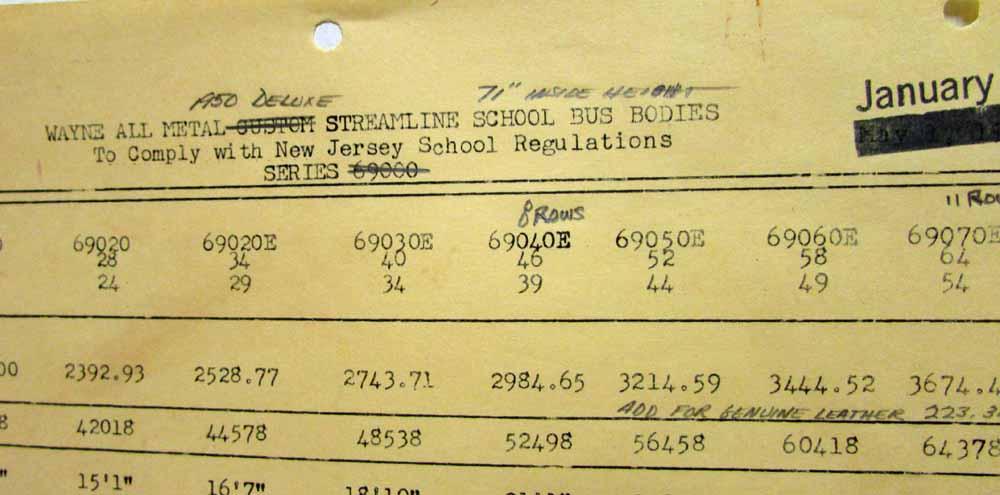 1950 DELUXE 71" INSIDE HEIGHT
January
WAYNE ALL METAL CUSTOM STREAMLINE SCHOOL BUS BODIES
To Comply with New Jersey School Regulations
SERIES 69000
8 ROWS 11 ROW
0 69020 69020E 69030E 69040E 69050E 69060E 69070E
28 34 40 46 52 58 64
24 29 34 39 44 49 54
00 2392.93 2528.77 2743.71 2984.65 3214.59 3444.52 3674.4
ADD FOR GENUINE LEATHER 223.3
8 42018 44578 48538 52498 56458 60418 64378
" 15'1" 16'7" 18'10"